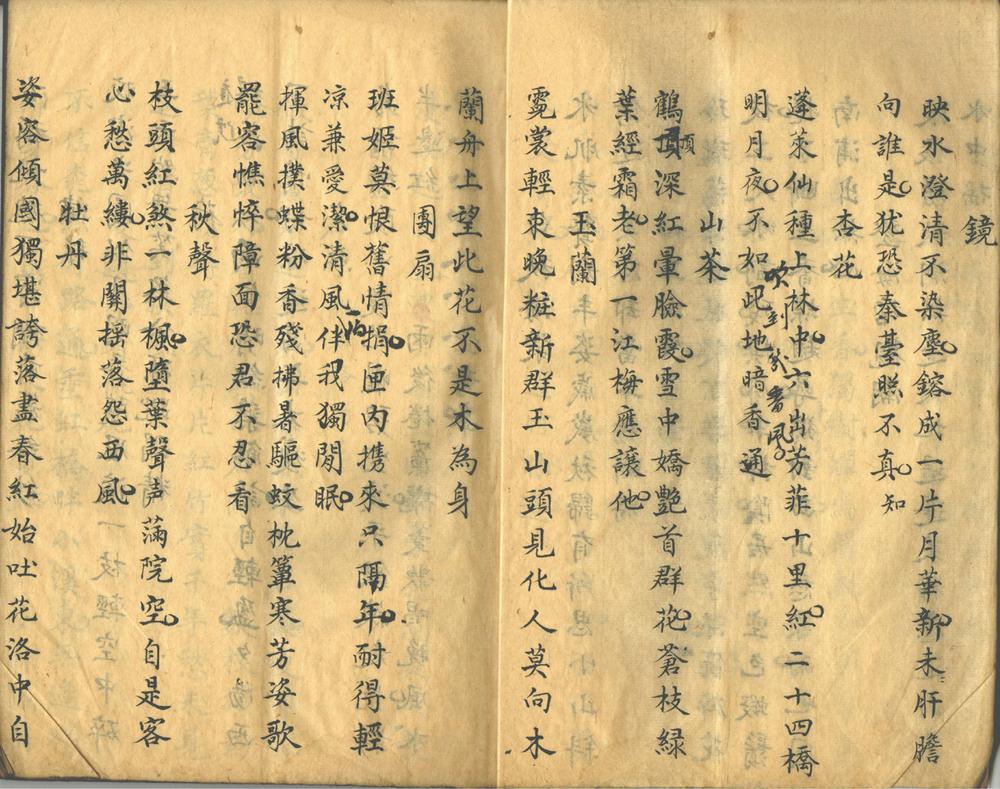 鏡
映水澄清不染塵鎔成一片月華新未肝膽
向誰是猶恐秦臺照不真知
杏花
蓬萊仙種上林中六出芳菲十里紅二十四橋
明月夜不如此地暗香通
吹到我香風
山茶
鶴頂深紅暈臉霞雪中嬌艷首群花蒼枝緑
頂
葉經霜老第一江梅應讓他
玉蘭
霓裳輕束晚粧新群玉山頭見化人莫向木
蘭舟上望此花不是木為身
團扇
班姬莫恨舊情捐匣内携來只隔年耐得輕
凉兼愛潔清風伴我獨閒眠
揮風撲蝶粉香殘拂暑驅蚊枕簟寒芳姿歌
罷容憔悴障面恐君不忍看
秋聲
枝頭紅煞一林楓墮葉聲声滿院空自是客
心愁萬縷非關揺落怨西風
牡丹
姿容傾國獨堪誇落盡春紅始吐花洛中自